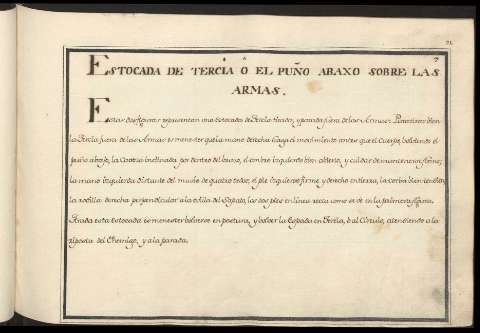 ESTOCADA DE TERCIA Ô EL PUÑO ABAXO SOBRE LAS
ARMAS.
Estas dos figuras representan una Estocada de Tercia tirada, y parada fuera de las Armas. Para tirar bien
la Tercia fuera de las Armas es menester que la mano derecha haga el movimiento antes que el Cuerpo, bolviendo el
puño abajo, la Cabeza inclinada por dentro del brazo, el ombro izquierdo bien abierto, y cuidar de mantenerse firme;
la mano izquierda distante del muslo de quatro dedos, el pie izquierdo firme y derecho en tierra, la corba bien tendida,
la rodilla derecha perpendicular a la evilla del Zapato, los dos pies en linea recta como se vé en la primera figura.
Tirada esta Estocada es menester bolverse en postura, y bolver la Espada en Tercia, ò al Circulo, atendiendo a la
respuesta del Enemigo, y a la parada.